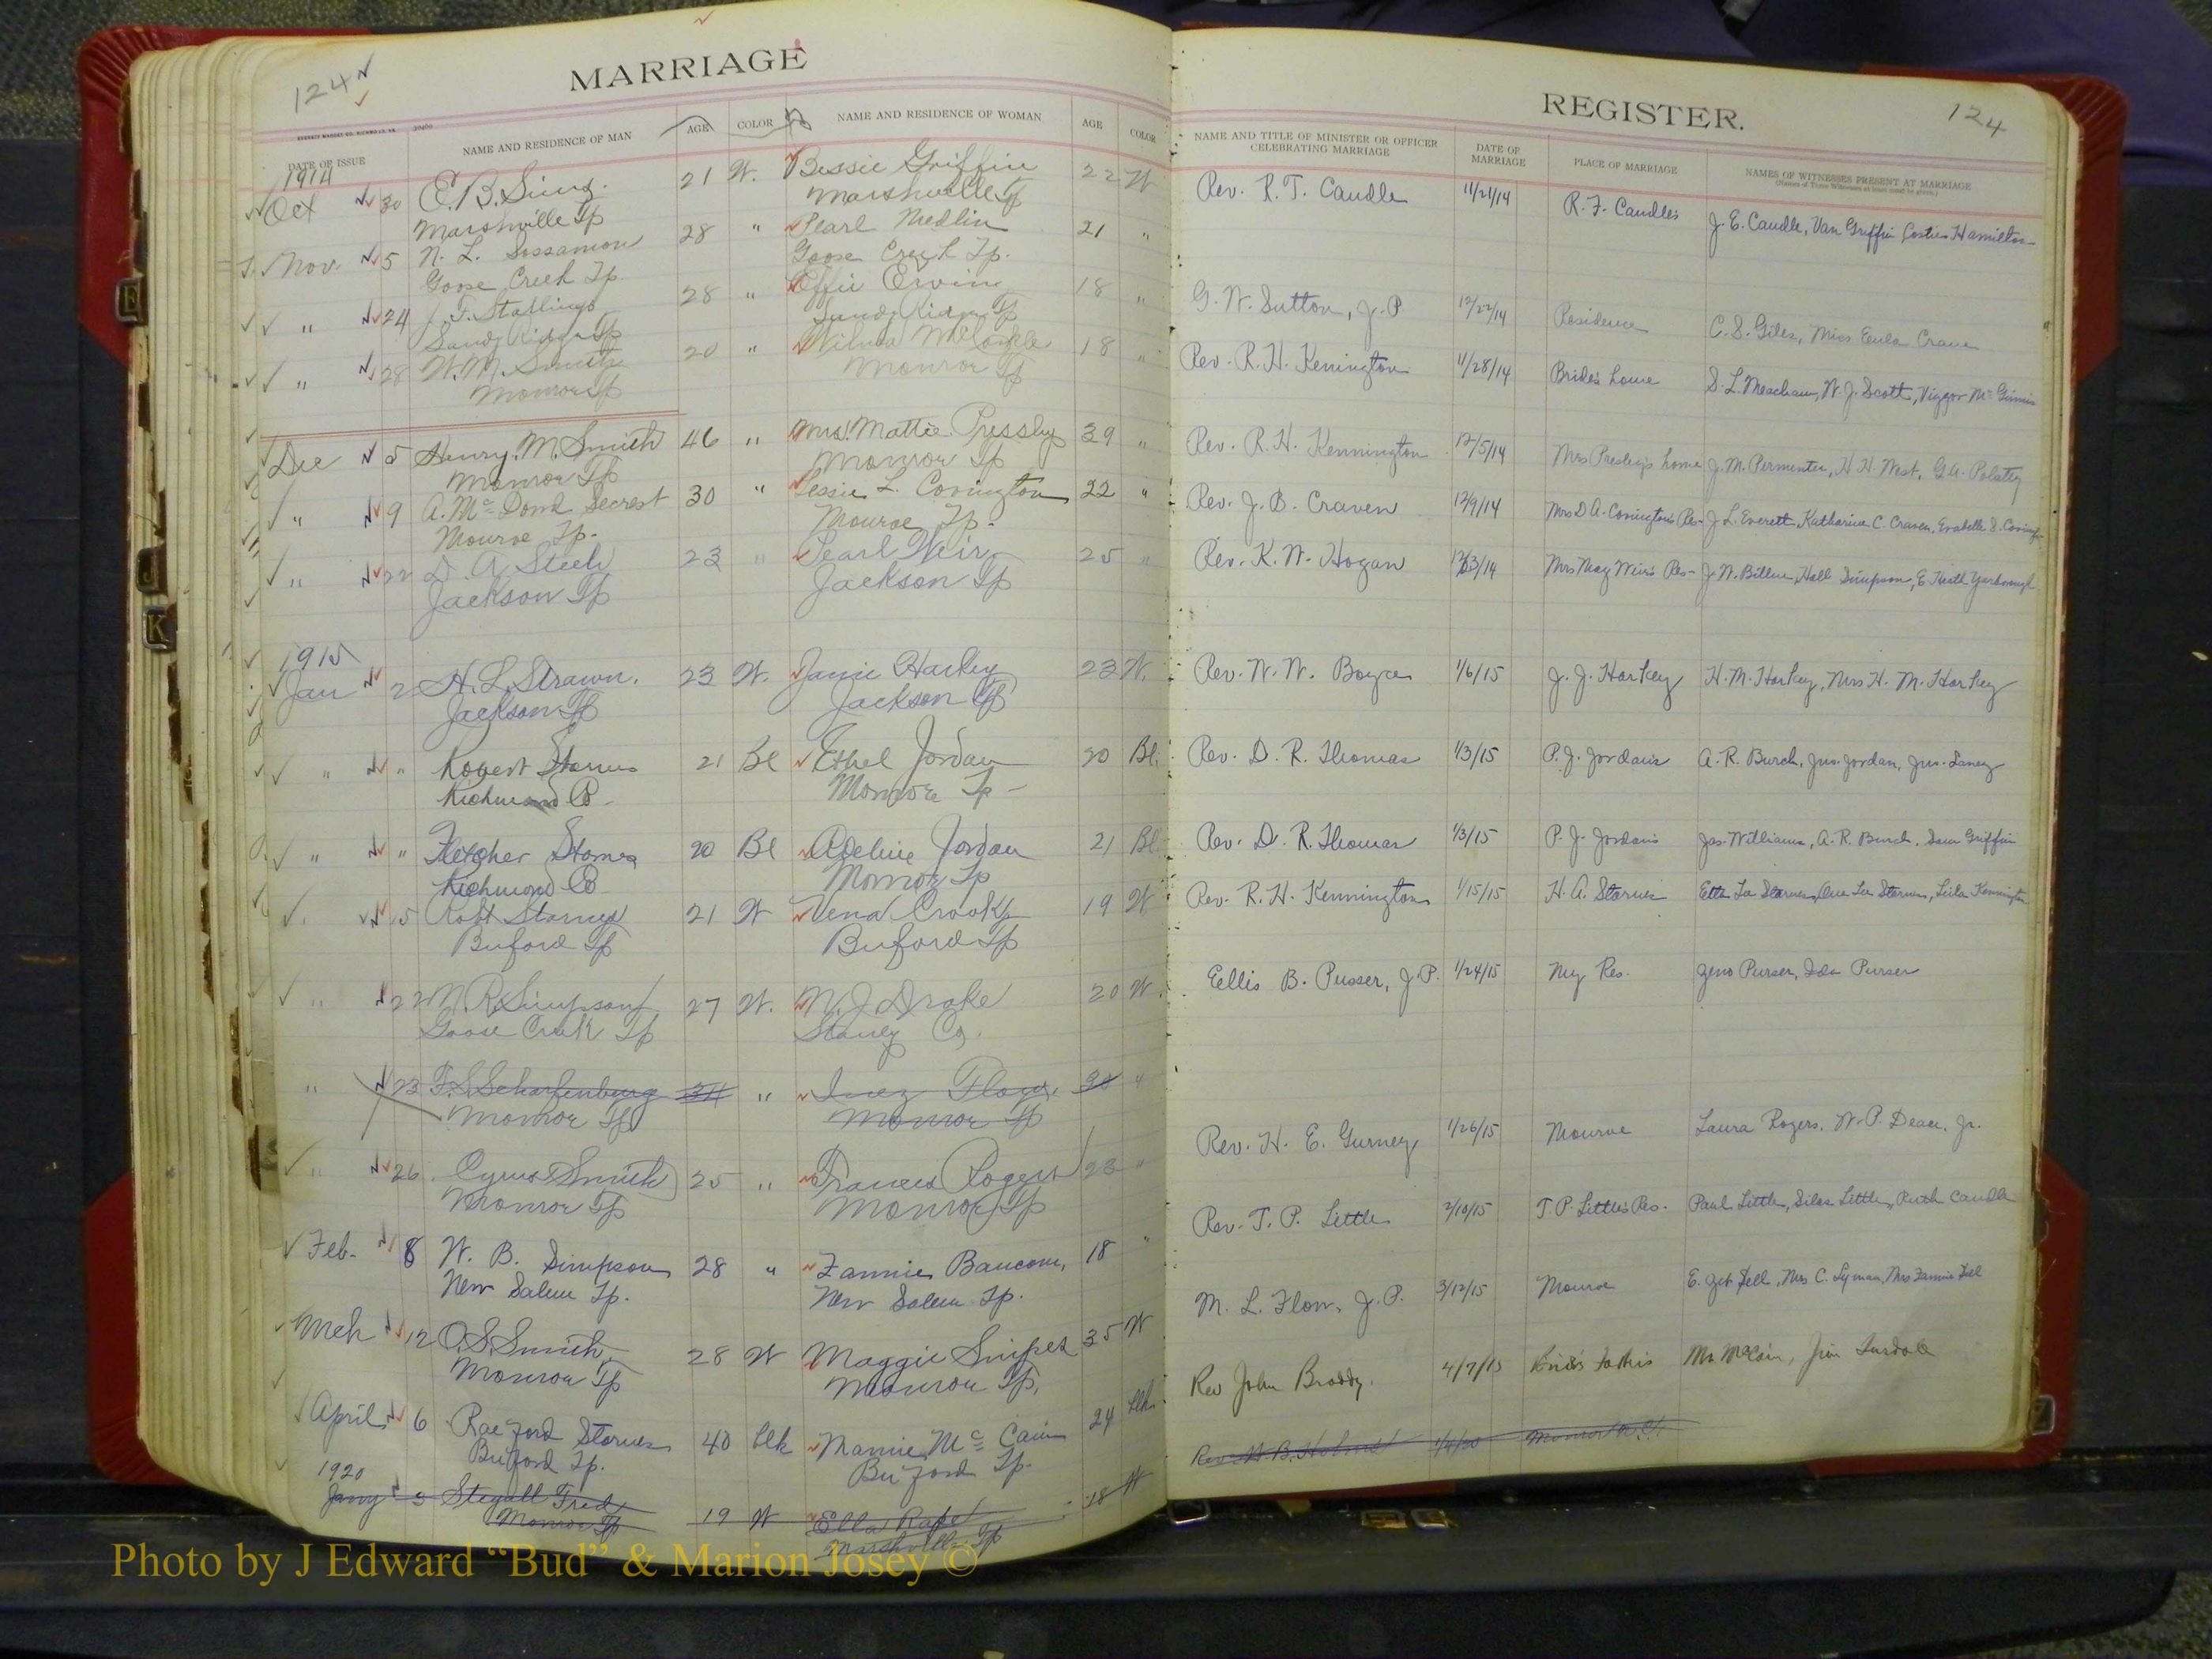 124
MARRIAGE
DATE OF ISSUE NAME AND RESIDENCE OF MAN AGE COLOR NAME AND RESIDENCE OF WOMAN AGE COLOR
1914
Oct 30 E. B. Sims. 21 W. Bessie Griffin 22 W
Marshville Tp Marshville Tp
Nov. 5 N. L. Sossamon 28 " Pearl Medlin 21 "
Goose Creek Tp Goose Creek Tp.
" 24 J. F. Stallings 28 " Effie Ervin 18 "
Sandy Ridge Tp Sandy Ridge Tp
" 28 W. M. Smith 20 " 18 "
Monroe Tp Monroe Tp
Dec 5 Henry M. Smith 46 " Mrs. Mattie Pressley 39 "
Monroe Tp Monroe Tp
" 9 A. Mc Dond Secrest 30 " Lessie L. Covington 22 "
Monroe Tp. Monroe Tp.
" 22 D. A. Steele 23 " Pearl Weir 25 "
Jackson Tp Jackson Tp
1915
Jan 2 H. L. Strawn. 23 W. Janie Harkey 23 W.
Jackson Tp Jackson Tp
" " Robert Starnes 21 Bl Ethel Jordan 20 Bl.
Richmond Co Monroe Tp
" " Fletcher 20 Bl Adeline Jordan 21 Bl
Richmond Co Monroe Tp
15 Robt Starnes 21 W Vena Crook 19 W
Buford Tp Buford Tp
" 22 M. R. Simpson 27 W. M. J. Drake 20 W.
Goose Creek Tp Stanly Co.
" 23 F. S. Scharfenburg 34 " Inez Flow. 30 "
Monroe Tp Monroe Tp
" 26 Cyrus Smith 25 " Frances Rogers 23 "
Monroe Tp Monroe Tp
Feb. 8 W. B. Simpson 28 " Fannie Baucom, 18 "
New Salem Tp. New Salem Tp.
Mch 12 O. S. Smith 28 W Maggie Snipes 35 W
Monroe Tp Monroe Tp.
April 6 Raeford Starnes 40 blk Mamie Mc Cain 24 blk
Buford Tp. Buford Tp.
1920
Jany 3 Stegall Fred 19 W Ella Rape 18 W
Monroe Tp Marshville Tp
REGISTER.
124
NAME AND TITLE OF MINISTER OR OFFICER CELEBRATING MARRIAGE DATE OF MARRIAGE PLACE OF MARRIAGE NAMES OF WITNESSES PRESENT AT MARRIAGE
Rev. R. T. Caudle 11/21/14 R. F. Caudle's J. E. Caudle, Van Griffin, Hamilton
G. W. Sutton, J. P 12/22/14 Residence C. S. Giles, Miss Eula Crane
Rev. R. H. Kennington 11/28/14 Bride's home S. L. Meacham, W. J. Scott, Mc Ginnis
Rev. R. H. Kennington 12/5/14 Mrs Presley's home J. M. Permenter, H. H. West, G. A.
Rev. J. B. Craven 12/9/14 Mrs D. A. Covington's Res- J. L. Everett, Katharine C. Craven,
Rev. K. W. Hogan 12/23/14 Mrs May Weir's Res- J. W. Billue, Hall Simpson, E. Heath Yarborough
Rev. W. W. Boyce 1/6/15 J. J. Harkey H. M. Harkey, Mrs H. M. Harkey
Rev. D. R. Thomas 1/3/15 P. J. Jordan's A. R. Burch, Jno. Jordan, Jno. Laney
Rev. D. R. Thomas 1/3/15 P. J. Jordan's Jas. Williams, A. R. Burch, Sam Griffin
Rev. R. H. Kennington 1/15/15 H. A. Starnes Etta La Starnes, Starnes, Leila Kennington
Eellis B. Pusser, J. P. 1/24/15 My Res. Zeno Purser, Ida Purser
Rev. H. E. Gurney 1/26/15 Monroe Laura Rogers. W. P. Jr.
Rev. T. P. Little 2/10/15 T. P. Little's Res. Paul Little, Silas Little, Ruth Caudle
M. L. Flow, J. P. 3/12/15 Monroe Mrs C. Lyman, Mrs Fannie
Rev John Broddy. 4/7/15 Mc Cain, Jim
Rev. W. B. 1/4/20 Monroe
Photo by J Edward “Bud” & Marion Josey ©